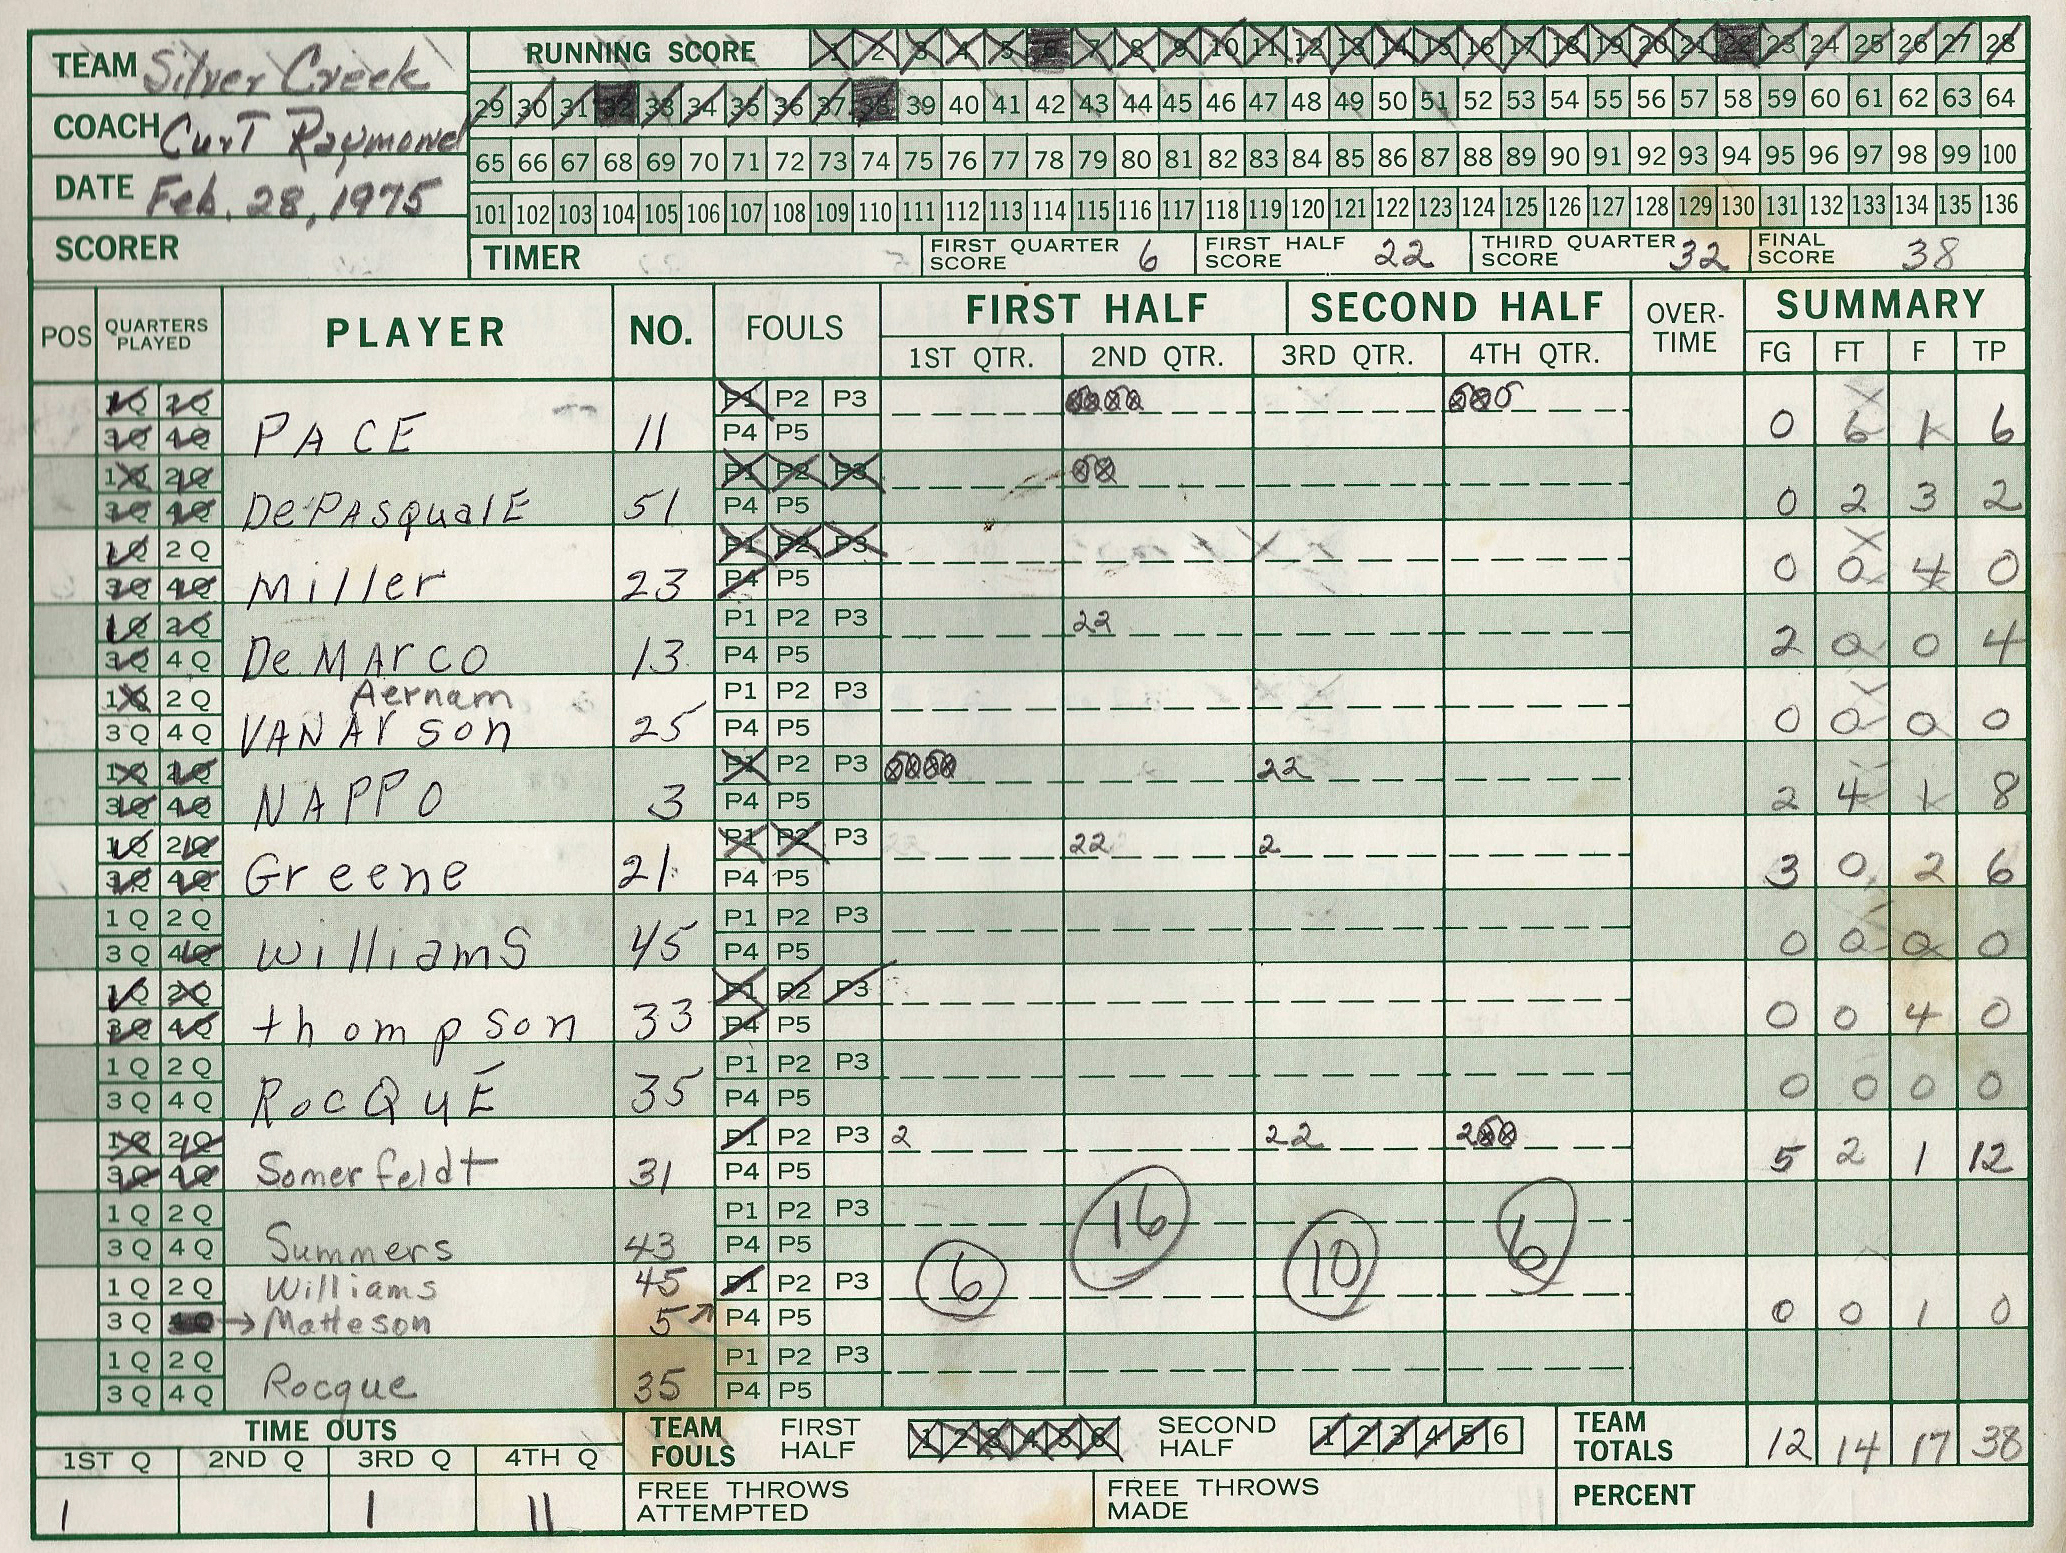 TEAM Silver Creek
COACH Curt Raymond
DATE Feb. 28, 1975
SCORER
RUNNING SCORE 1 2 3 4 5 6 7 8 9 10 11 12 13 14 15 16 17 18 19 20 21 22 23 24 25 26 27 28
29 30 31 32 33 34 35 36 37 38 39 40 41 42 43 44 45 46 47 48 49 50 51 52 53 54 55 56 57 58 59 60 61 62 63 64
65 66 67 68 69 70 71 72 73 74 75 76 77 78 79 80 81 82 83 84 85 86 87 88 89 90 91 92 93 94 95 96 97 98 99 100
101 102 103 104 105 106 107 108 109 110 111 112 113 114 115 116 117 118 119 120 121 122 123 124 125 126 127 128 129 130 131 132 133 134 135 136
TIMER FIRST QUARTER SCORE 6 FIRST HALF SCORE 22 THIRD QUARTER SCORE 32 FINAL SCORE 38
POS QUARTERS PLAYED PLAYER NO. FOULS FIRST HALF SECOND HALF OVER-TIME SUMMARY
1ST QTR. 2ND QTR. 3RD QTR. 4TH QTR. FG FT F TP
1Q 2Q P1 P2 P3
3Q 4Q PACE 11 P4 P5 0 6 1 6
1Q 2Q P1 P2 P3
3Q 4Q DePASqualE 51 P4 P5 0 2 3 2
1Q 2Q P1 P2 P3
3Q 4Q Miller 23 P4 P5 0 0 4 0
1Q 2Q P1 P2 P3 22
3Q 4Q DeMArco 13 P4 P5 2 0 0 4
1Q 2Q Aernam P1 P2 P3
3Q 4Q VANAr son 25 P4 P5 0 0 0 0
1Q 2Q P1 P2 P3 22
3Q 4Q NAPPO 3 P4 P5 2 4 1 8
1Q 2Q P1 P2 P3 22 2
3Q 4Q Greene 21 P4 P5 3 0 2 6
1Q 2Q P1 P2 P3
3Q 4Q Williams 45 P4 P5 0 0 0 0
1Q 2Q P1 P2 P3
3Q 4Q thompson 33 P4 P5 0 0 4 0
1Q 2Q P1 P2 P3
3Q 4Q RocQuE 35 P4 P5 0 0 0 0
1Q 2Q P1 P2 P3 2 22 2
3Q 4Q Somerfeldt 31 P4 P5 5 2 1 12
1Q 2Q P1 P2 P3 16 6
3Q 4Q Summers 43 P4 P5
1Q 2Q Williams 45 P1 P2 P3 6 10
3Q 4Q → Matteson 5 P4 P5 0 0 1 0
1Q 2Q P1 P2 P3
3Q 4Q Rocque 35 P4 P5
TIME OUTS TEAM FOULS FIRST HALF 1 2 3 4 5 6 SECOND HALF 1 2 3 4 5 6 TEAM TOTALS 12 14 17 38
1ST Q 2ND Q 3RD Q 4TH Q
1 1 11 FREE THROWS ATTEMPTED FREE THROWS MADE PERCENT